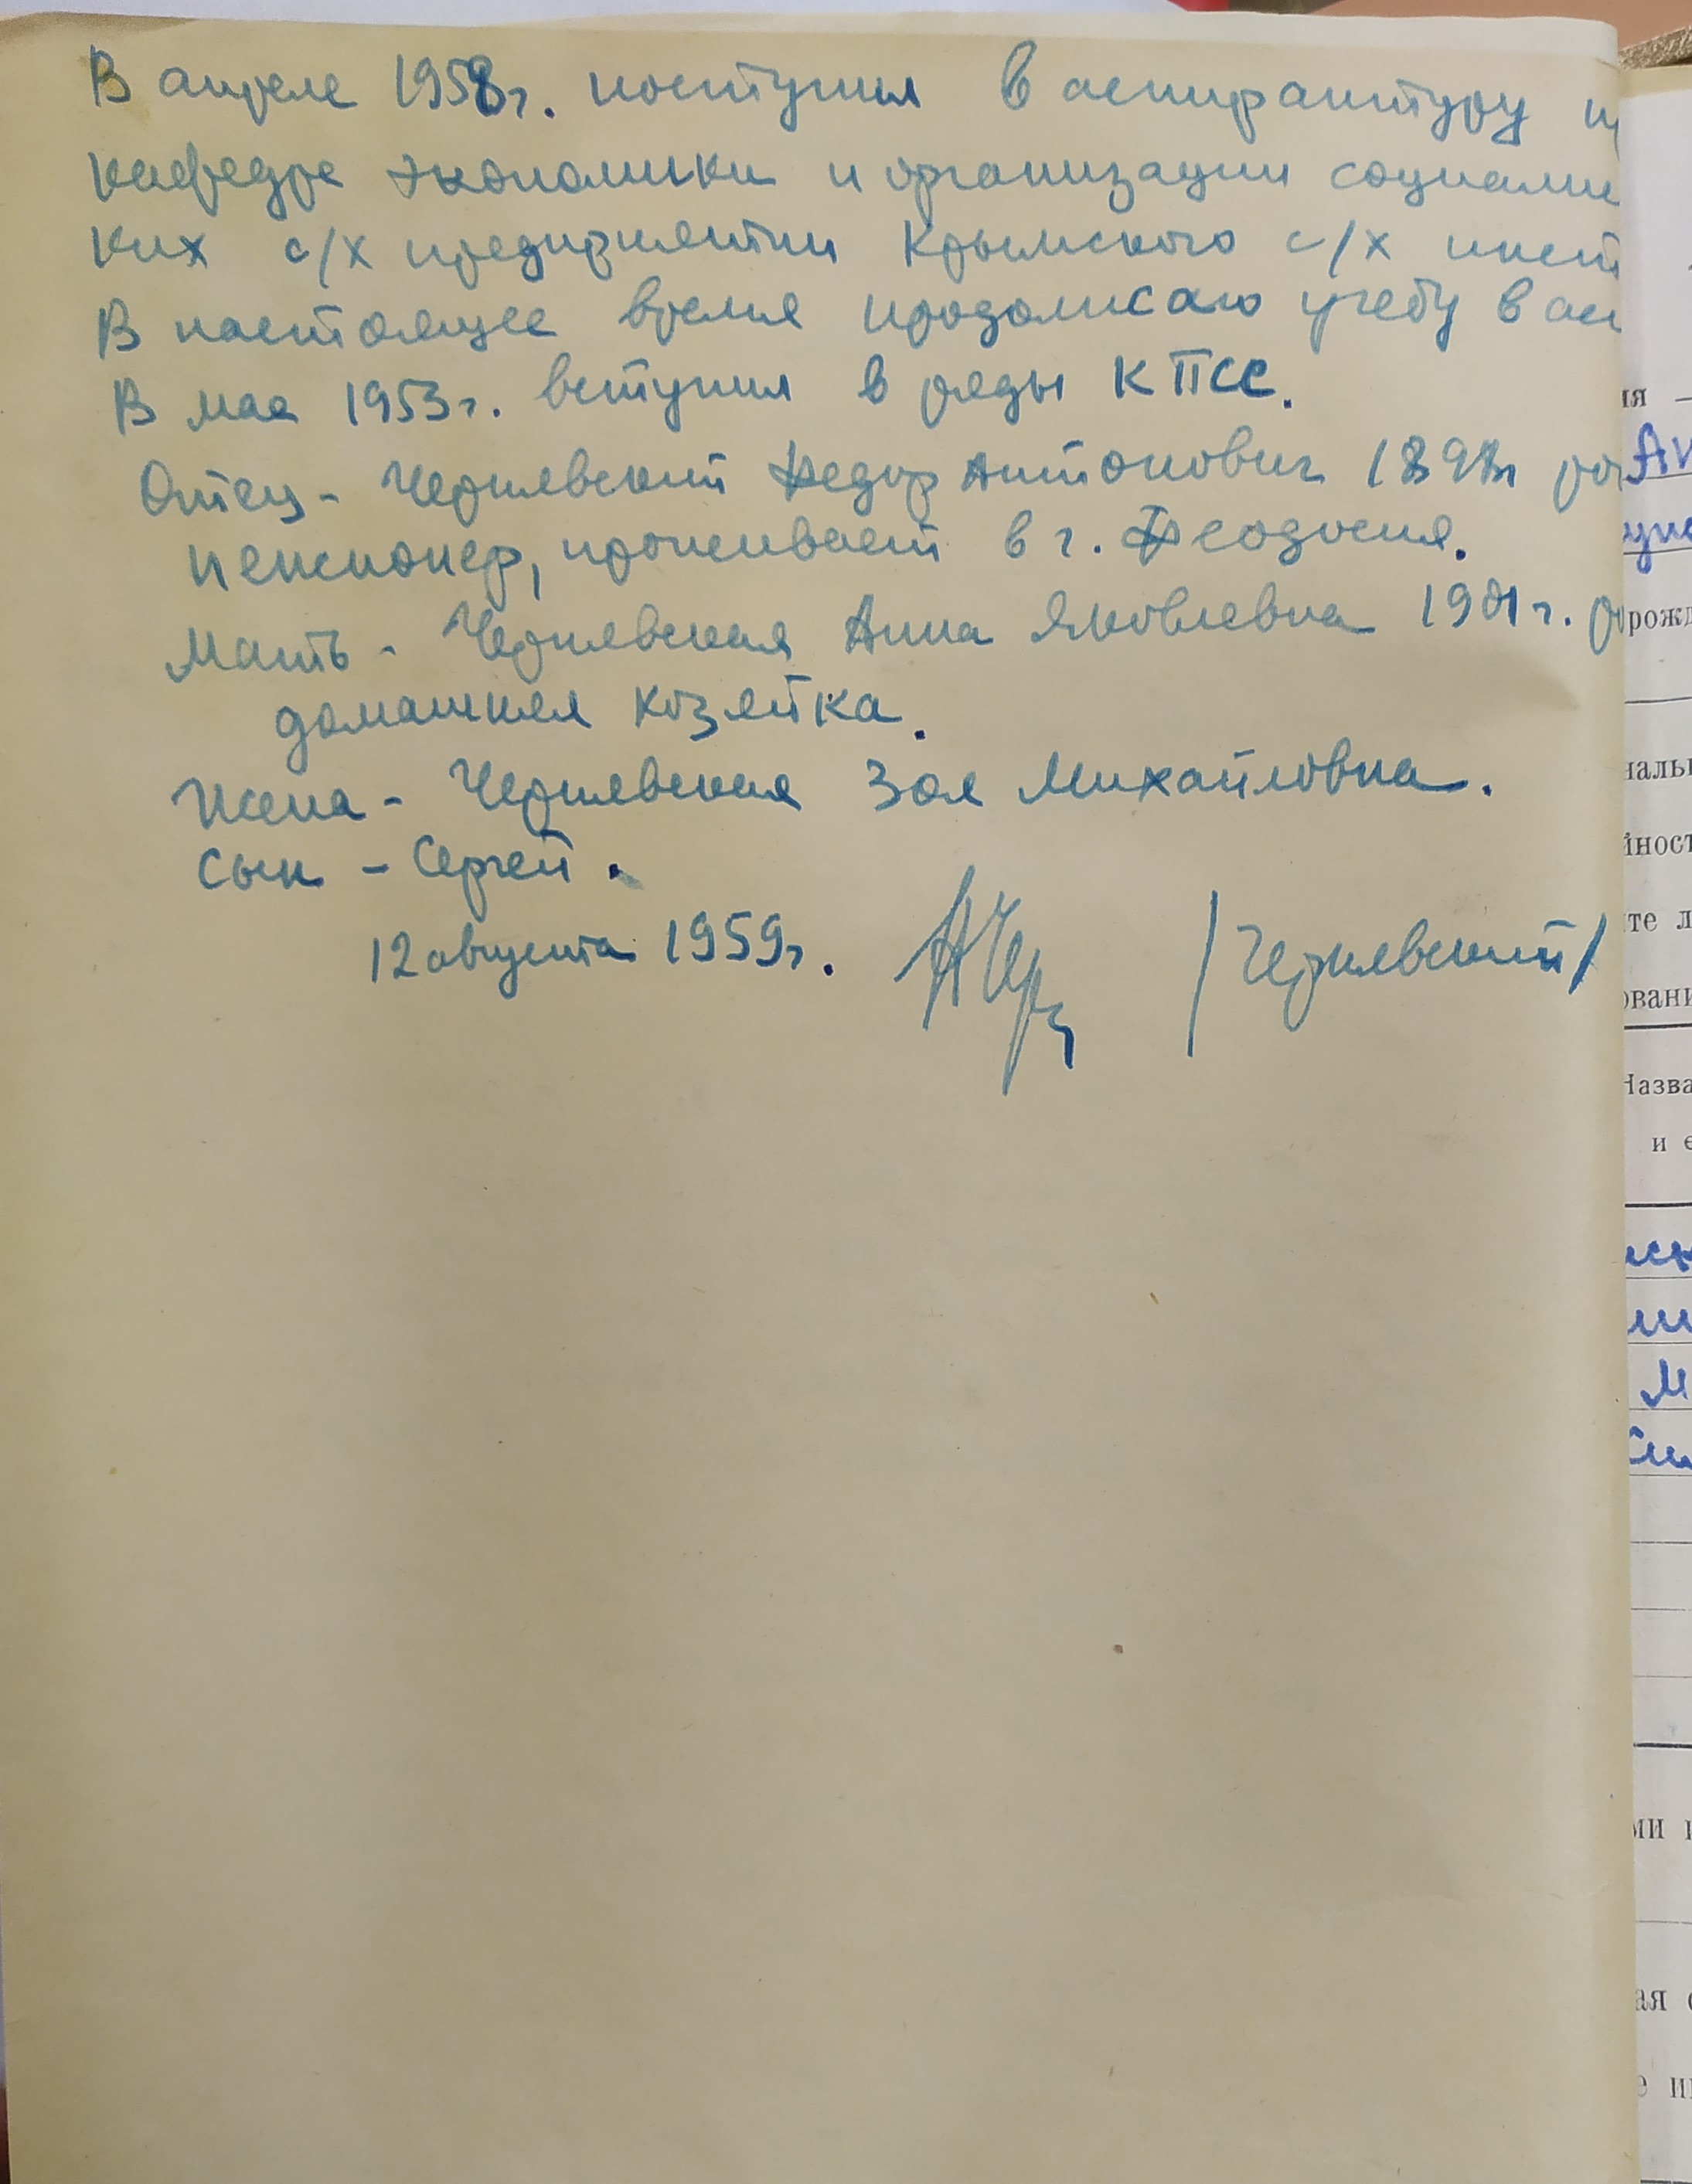 В апреле 1958г. поступил в аспирантуру п
кафедре экономики и организации социалис
ких с/х предприятий Крымского с/х инст
В настоящее время продолжаю учебу в асп
В мае 1953г. вступил в ряды КПСС.
Отец - Чернявский Федор Антонович 1898г ро
пенсионер, проживает в г. Феодосия.
Мать - Чернявская Анна Яковлевна 1901г. р
домашняя хозяйка.
Жена - Чернявская Зоя Михайловна.
Сын - Сергей.
12 августа 1959г. /Чернявский/
ия —
рожд
наль
йност
те л
овани
Назва
и е
М
ми и
ая о
е и